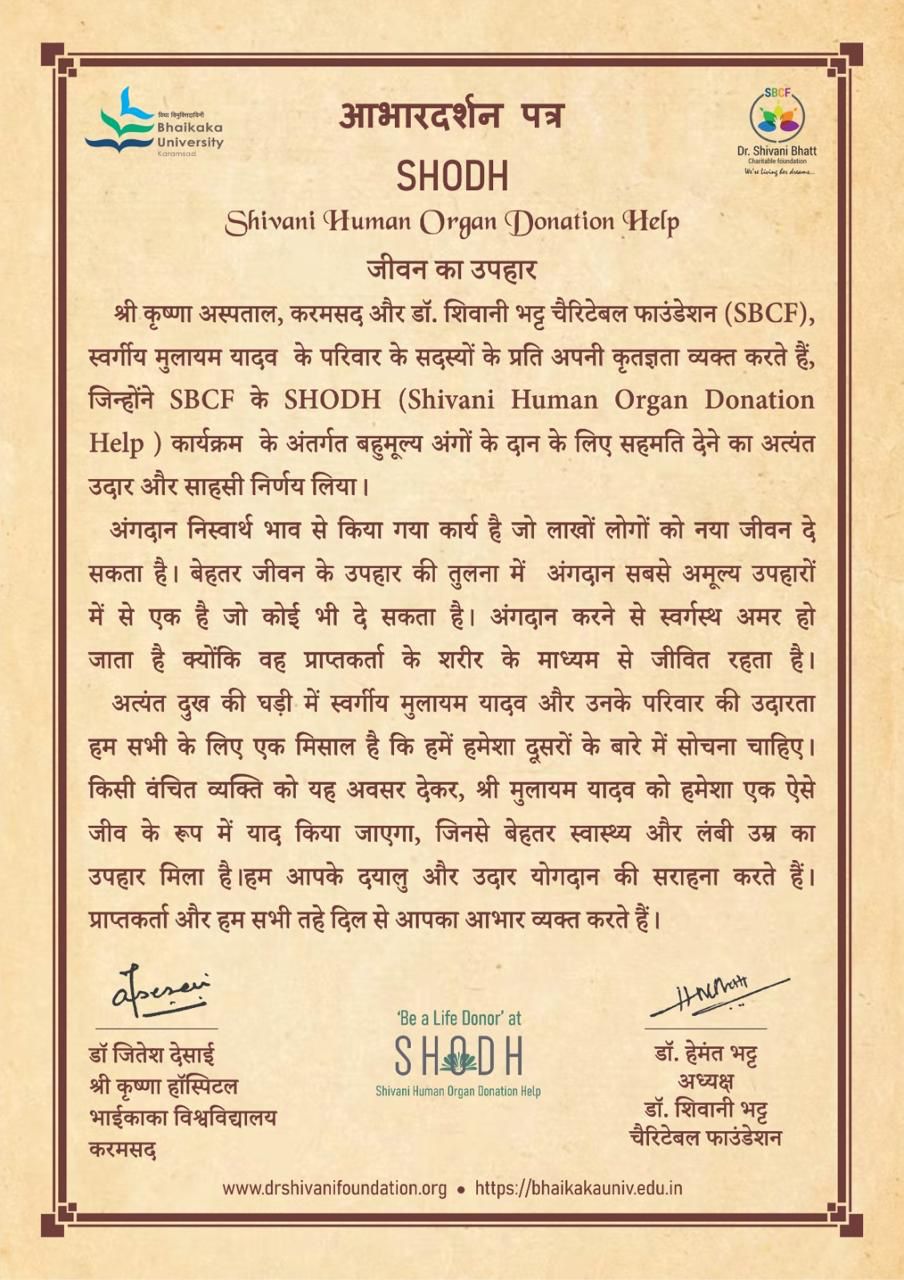 विद्या विमुक्तिदायिनी
Bhaikaka
University
Karamsad
आभारदर्शन पत्र
SBCF
Dr. Shivani Bhatt
Charitable foundation
We're living her dreams...
SHODH
Shivani Human Organ Donation Help
जीवन का उपहार
श्री कृष्णा अस्पताल, करमसद और डॉ. शिवानी भट्ट चैरिटेबल फाउंडेशन (SBCF),
स्वर्गीय मुलायम यादव के परिवार के सदस्यों के प्रति अपनी कृतज्ञता व्यक्त करते हैं,
जिन्होंने SBCF के SHODH (Shivani Human Organ Donation
Help ) कार्यक्रम के अंतर्गत बहुमूल्य अंगों के दान के लिए सहमति देने का अत्यंत
उदार और साहसी निर्णय लिया।
अंगदान निस्वार्थ भाव से किया गया कार्य है जो लाखों लोगों को नया जीवन दे
सकता है। बेहतर जीवन के उपहार की तुलना में अंगदान सबसे अमूल्य उपहारों
में से एक है जो कोई भी दे सकता है। अंगदान करने से स्वर्गस्थ अमर हो
जाता है क्योंकि वह प्राप्तकर्ता के शरीर के माध्यम से जीवित रहता है।
अत्यंत दुख की घड़ी में स्वर्गीय मुलायम यादव और उनके परिवार की उदारता
हम सभी के लिए एक मिसाल है कि हमें हमेशा दूसरों के बारे में सोचना चाहिए।
किसी वंचित व्यक्ति को यह अवसर देकर, श्री मुलायम यादव को हमेशा एक ऐसे
जीव के रूप में याद किया जाएगा, जिनसे बेहतर स्वास्थ्य और लंबी उम्र का
उपहार मिला है।हम आपके दयालु और उदार योगदान की सराहना करते हैं।
प्राप्तकर्ता और हम सभी तहे दिल से आपका आभार व्यक्त करते हैं।
डॉ जितेश देसाई
श्री कृष्णा हॉस्पिटल
भाईकाका विश्वविद्यालय
करमसद
'Be a Life Donor' at
SHODH
Shivani Human Organ Donation Help
डॉ. हेमंत भट्ट
अध्यक्ष
डॉ. शिवानी भट्ट
चैरिटेबल फाउंडेशन
www.drshivanifoundation.org • https://bhaikakauniv.edu.in